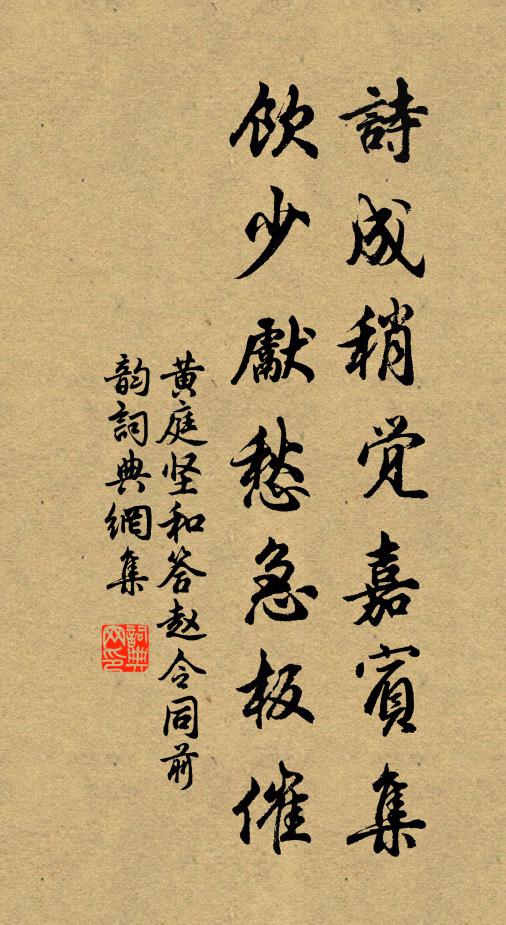 詩成稍觉嘉賓集
飲少獻愁急板催
黄庭坚和答赵令同前
韵詞典網集
詞典
网印